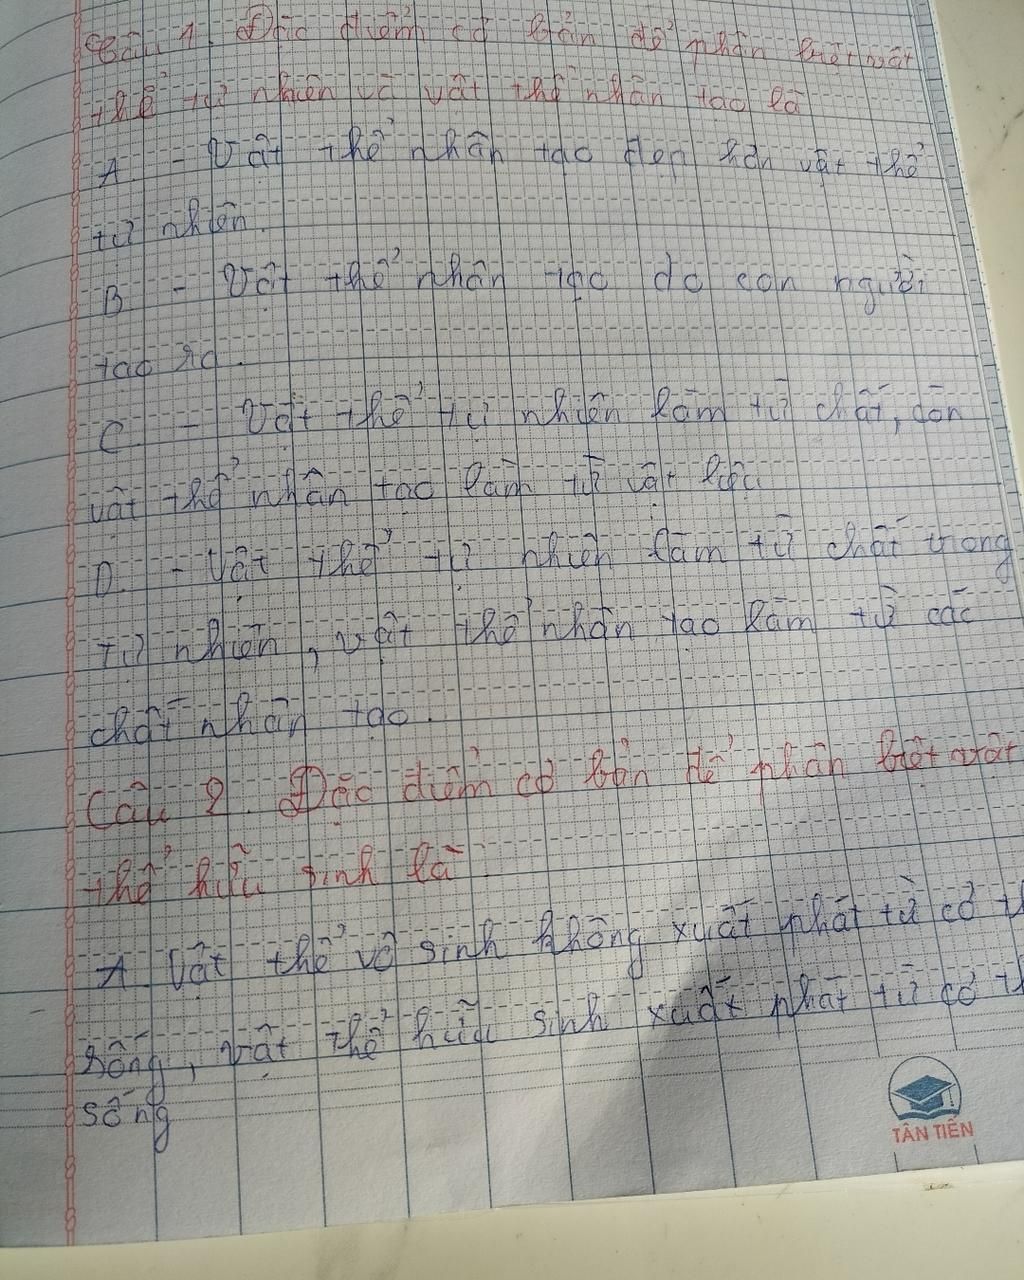 Câu 1. Đặc điểm cơ bản để phân biệt vật
thể tự nhiên và vật thể nhân tạo là
A - Vật thể nhân tạo đẹp hơn vật thể
tự nhiên.
B - Vật thể nhân tạo do con người
tạo ra.
C - Vật thể tự nhiên làm từ chất, còn
vật thể nhân tạo làm từ vật liệu
D. - Vật thể tự nhiên làm từ chất trong
tự nhiên, vật thể nhân tạo làm từ các
chất nhân tạo.
Câu 2. Đặc điểm cơ bản để phân biệt vật
thể hữu sinh là
A Vật thể vô sinh không xuất phát từ cơ
sống, vật thể hữu sinh xuất phát từ cơ
sống
TÂN TIẾN